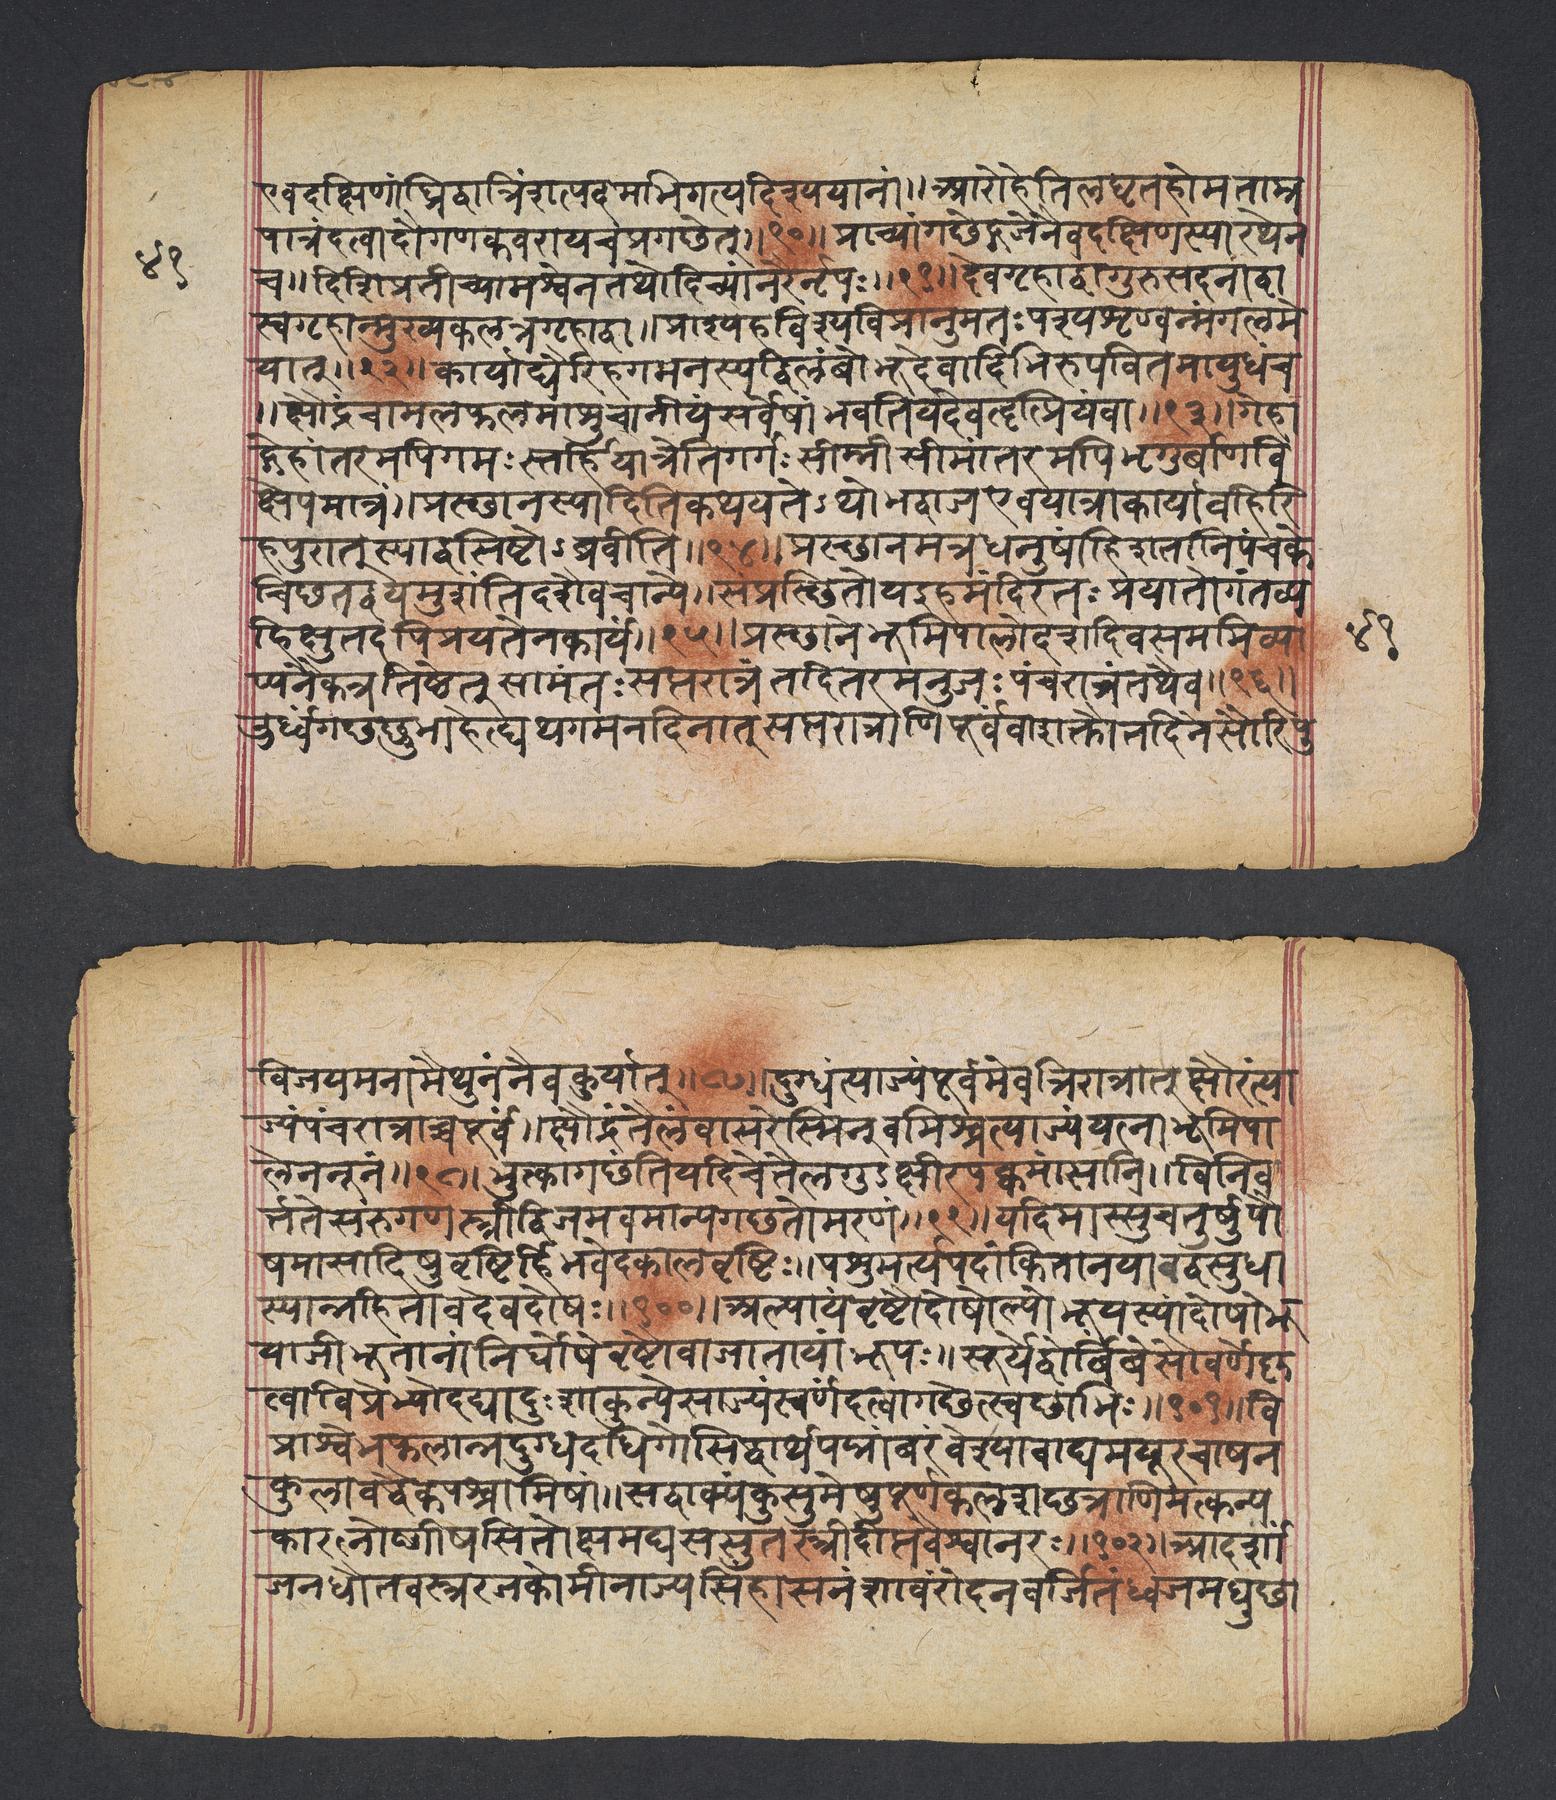 एवदक्षिणांघ्रिद्वात्रिंशत्पदमभिगत्यदिश्ययानां॥आरोहेतिलघृतहेमताम्र
पात्रंदत्वादौगणकवरायचप्रगछेत्॥९०॥प्राच्यांगछेद्गजेनैवदक्षिणस्यांरथेन
च॥दिशिप्रतीच्यामश्वेनतथोदिच्यांनरैर्नृपः॥९१॥देवगृहाद्वागुरुसदनाद्वा
स्वगृहान्मुख्यकलत्रगृहाद्वा॥प्राश्यहविश्यंविप्रानुमतःपश्यशृण्वन्मंगलमे
यात्॥९२॥कार्याद्यैरिहगमनस्यद्विलंबोभूदेवादिभिरुपवितमायुधंच
॥क्षौद्रंचामलफलमाशुचानीयंसर्वेषांभवतियदेवत्दृत्प्रियंवा॥९३॥गेहा
द्गेहांतरमपिगमःस्तर्हियात्रेतिगर्गःसीम्नीसीमांतरमपिभृगुर्बाणवि
क्षेपमात्रं॥प्रस्छानस्यादितिकथयतेऽथोभद्वाजएवयात्राकार्यावहिरि
हपुरात्स्याद्वसिष्टोऽब्रवीति॥९४॥प्रस्छानमत्रधनुषांहिशतानिपंचके
चिछतद्वयमुशंतिदशैवचान्ये॥संप्रस्छितोयइहमंदिरतःप्रयातोगंतव्य
दिक्षुतदपिप्रयतेनकार्यं॥९५॥प्रस्छानेभूमिपालोदशदिवसमभिव्या
प्यनैकत्रतिष्ठेत्सामंतःसप्तरात्रंतदितरमनुजःपंचरात्रंतथैव॥९६॥
४९
४९
विजयमनामैथुनंनैवकुर्यात्॥९७॥दुग्धंत्याज्यंपूर्वमेवत्रिरात्रात्क्षौरंत्या
ज्यंपंचरात्राच्चपूर्वं॥क्षौद्रंतैलंवासरेस्मिन्वमिश्चत्याज्यंयत्नाभूमिपा
लेननूनं॥९८॥भुत्कागछंतियदिचेत्तैलगुऽक्षीरपक्वमांसानि॥विनिव
र्त्ततेसरुगणस्त्रीद्विजमवमान्यगछतोमरणं॥९९॥यदिमास्सुचतुर्षुपौ
षमासादिषुवृष्टिर्हिभवेदकालवृष्टिः॥पशुमर्त्यपदांकितानयावद्वसुधा
स्यान्नहितावदेवदोषः॥१००॥अल्पायंवृष्टौदोषोल्पोभूयस्यांदोषोभू
याजीभूतानांनिर्घोषेवृष्टौवाजातायांभूपः॥सूर्येद्वोर्बिंबेसौवर्णेकृ
त्वाविप्रेभ्योदद्यादुःशाकुन्येसाज्यंस्वर्णंदत्वागछेत्स्वेछाभिः॥१०१॥वि
प्राश्वेभफलान्नदुग्धदधिगोसिद्धार्थपद्मांबरंवेश्यावाद्यमयूरचाषन
कुलाबद्धैकपश्वामिषां॥सद्वाक्यंकुसुमेषुपूर्णकलशछत्राणिमत्कन्य
कारत्नोष्णीषसितोक्षमद्यससुतस्त्रीदीप्तवैश्वानरः॥१०२॥आदर्शां
जनधौतवस्त्ररजकोमीनाज्यसिंहासनंशावंरोदनवर्जितंध्वजमधुछा